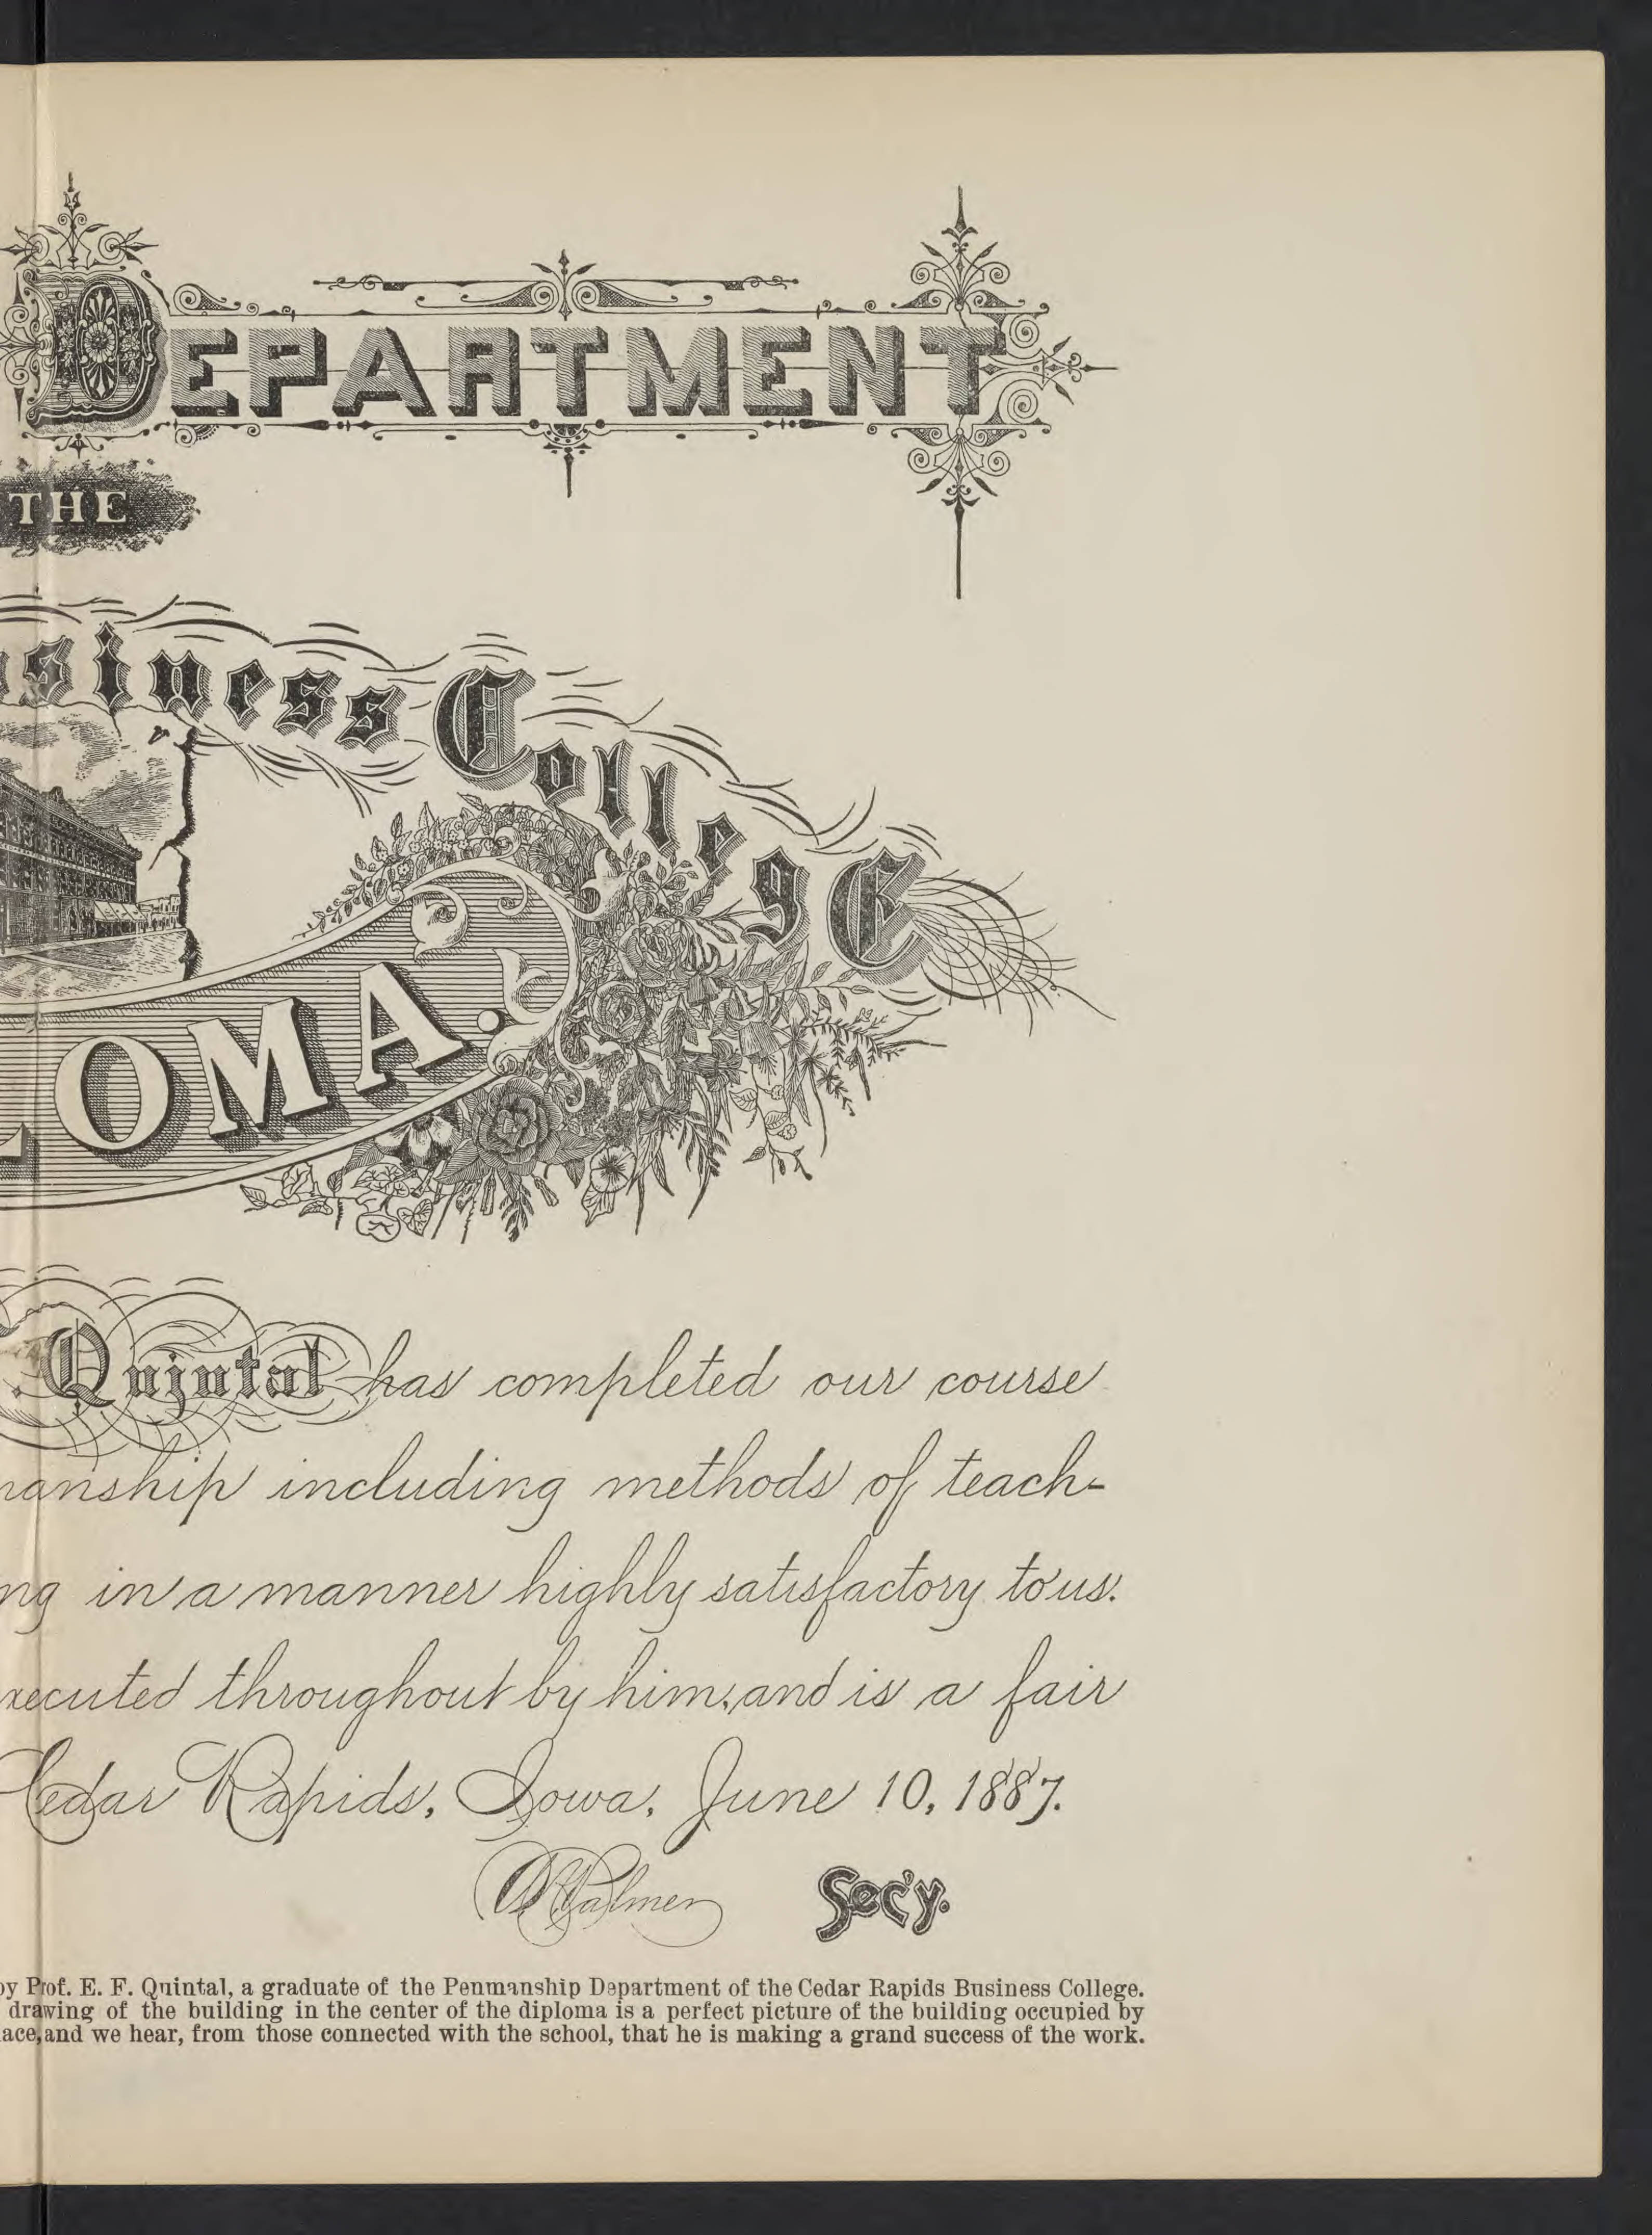 DEPARTMENT
THE
siness CollegE
LOMA.
. Quintal has completed our course
manship including methods of teach-
ng in a manner highly satisfactory to us.
xecuted throughout by him, and is a fair
Cedar Rapids, Iowa, June 10, 1887.
A.N. Palmer Sec'y.
by Prof. E. F. Quintal, a graduate of the Penmanship Department of the Cedar Rapids Business College.
drawing of the building in the center of the diploma is a perfect picture of the building occupied by
ace, and we hear, from those connected with the school, that he is making a grand success of the work.